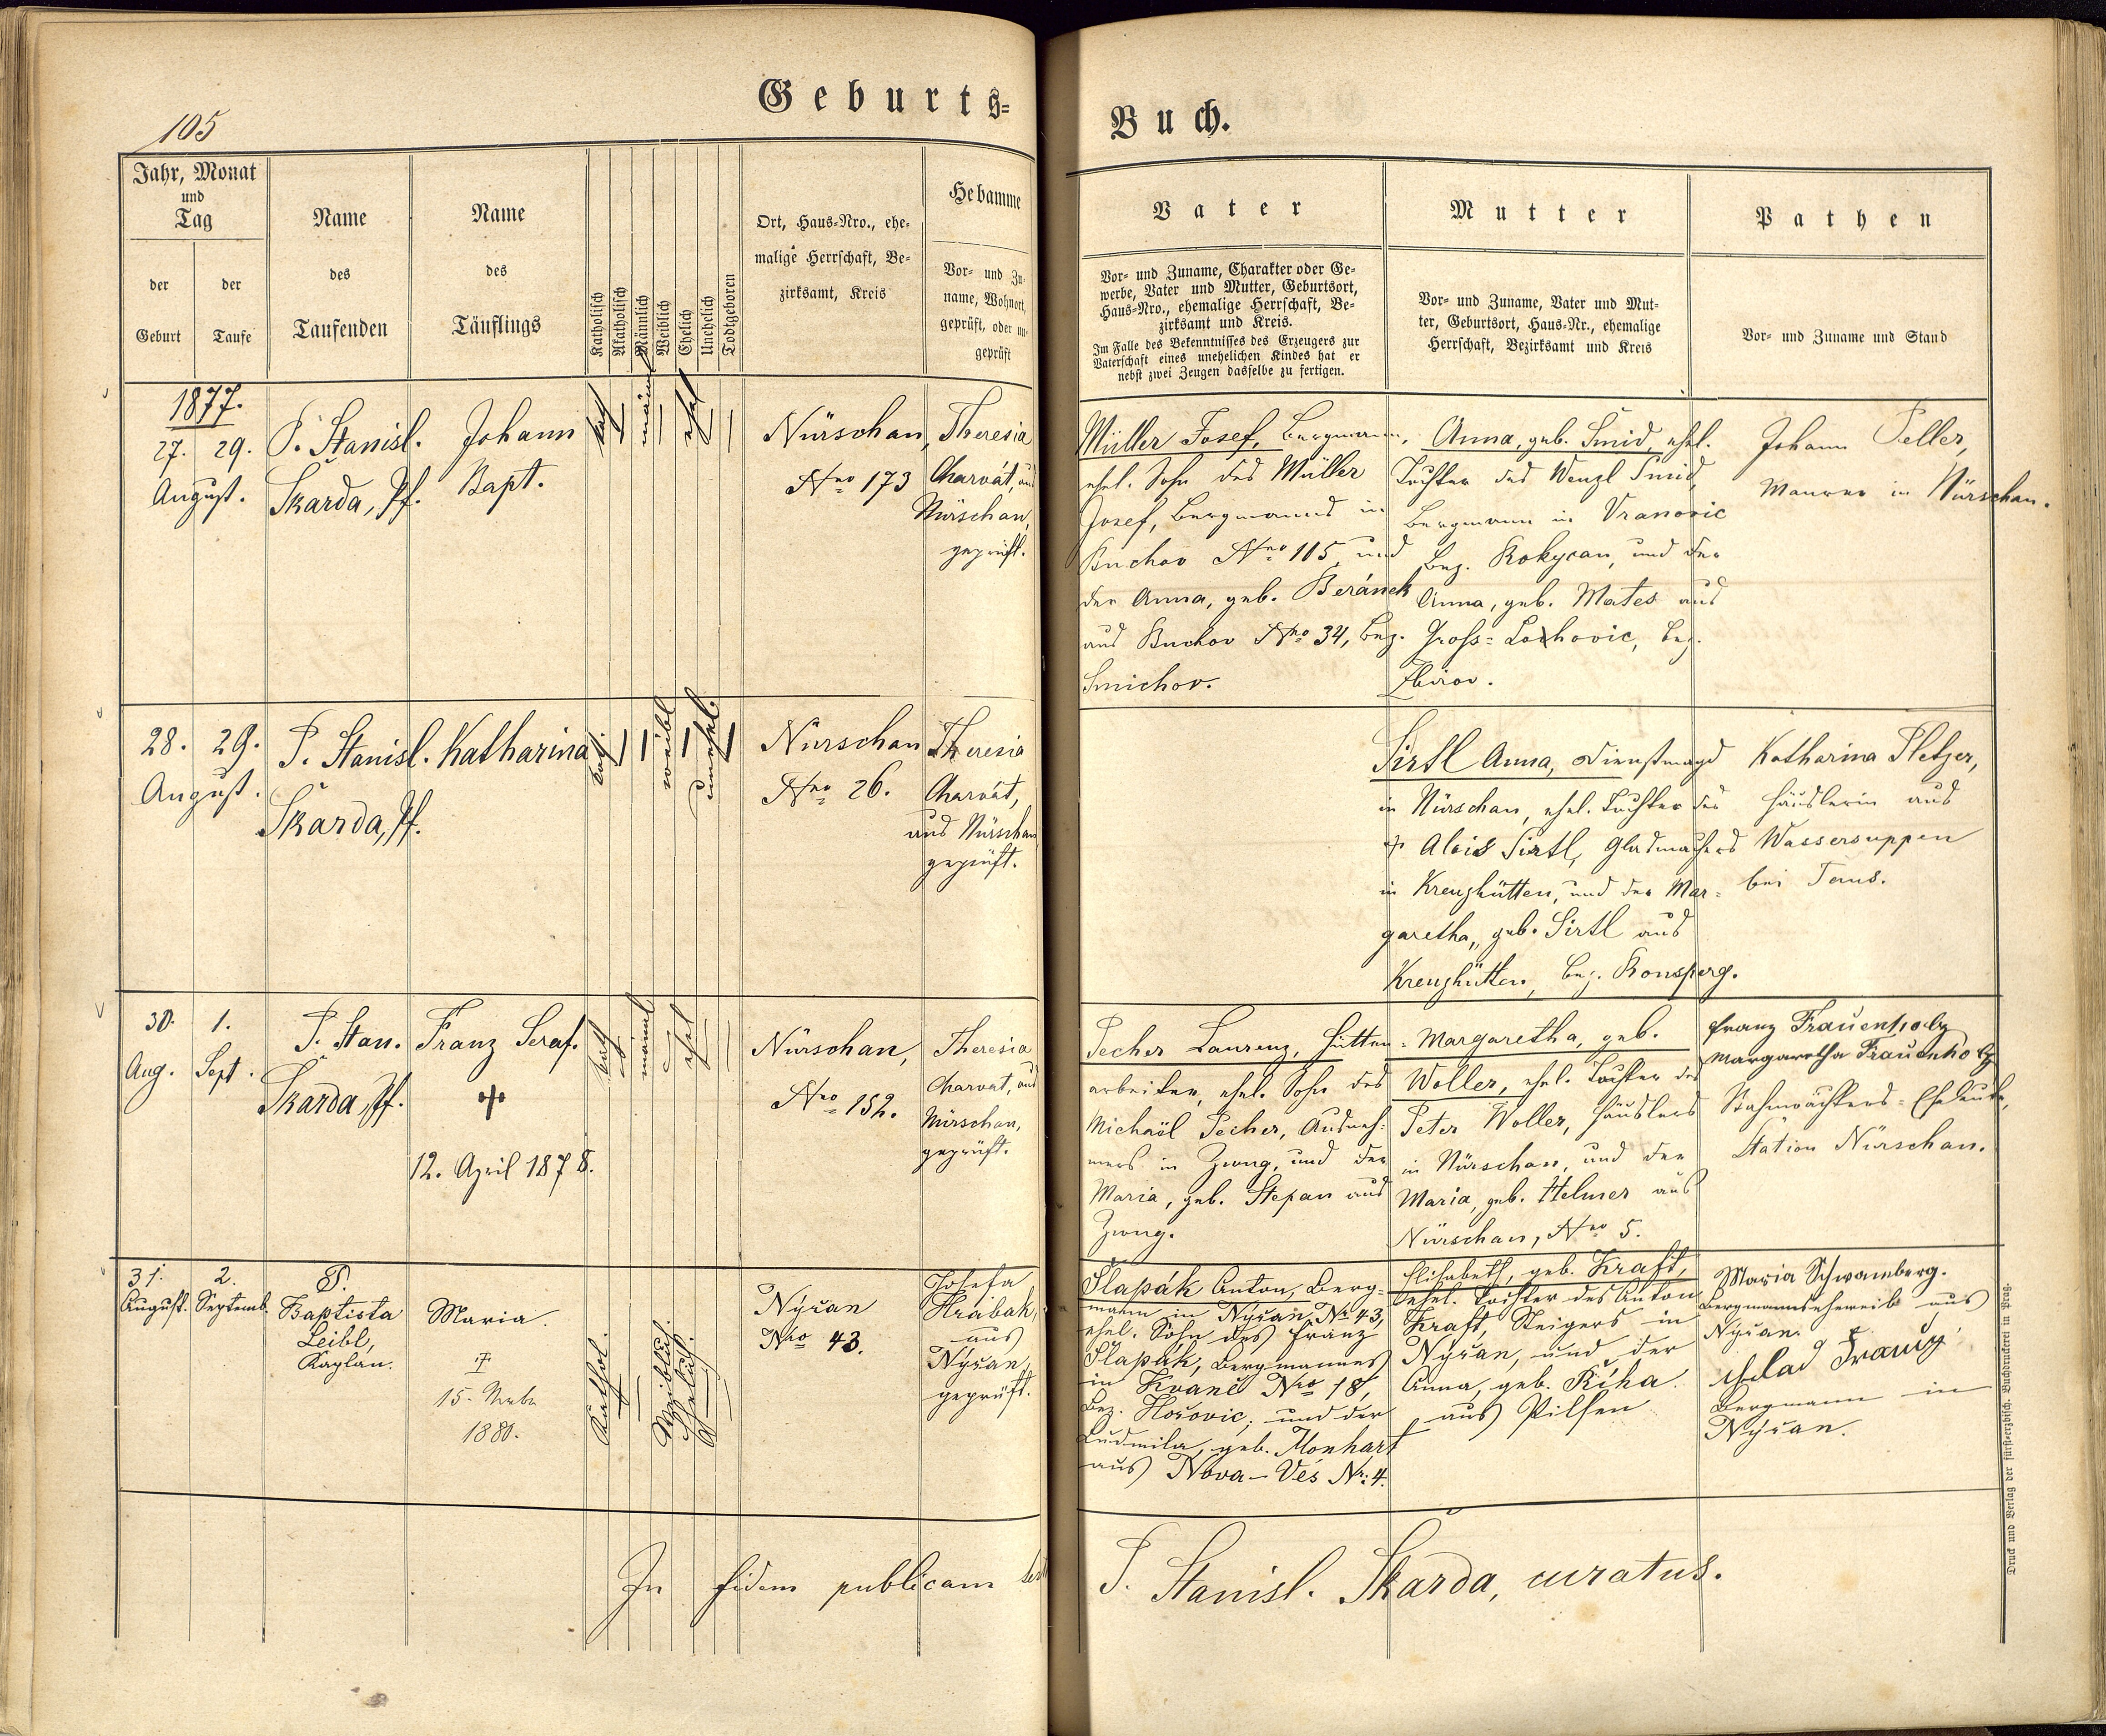 105
Geburts=
Buch.
Jahr, Monat
und
Tag
der
Geburt
der
Taufe
Name
des
Taufenden
Name
des
Täuflings
Katholisch
Akatholisch
Männlich
Weiblich
Ehelich
Unehelich
Todtgeboren
Ort, Haus=Nro., ehe=
malige Herrschaft, Be=
zirksamt, Kreis
Hebamme
Vor= und Zu=
name, Wohnort,
geprüft, oder un=
geprüft
Vater
Vor= und Zuname, Charakter oder Ge=
werbe, Vater und Mutter, Geburtsort,
Haus=Nro., ehemalige Herrschaft, Be=
zirksamt und Kreis.
Im Falle des Bekenntnisses des Erzeugers zur
Vaterschaft eines unehelichen Kindes hat er
nebst zwei Zeugen dasselbe zu fertigen.
Mutter
Vor= und Zuname, Vater und Mut=
ter, Geburtsort, Haus=Nr., ehemalige
Herrschaft, Bezirksamt und Kreis
Pathen
Vor= und Zuname und Stand
1877.
27. 29.
August.
P. Stanisl.
Škarda, Pf.
Johann
Bapt.
kath
männl
ehel
Nürschan,
Nro 173
Theresia
Charvát, aus
Nürschan,
geprüft.
Müller Josef, Bergmann,
ehel. Sohn des Müller
Josef, Bergmanns in
Buchov Nro 115, und
der Anna, geb. Beránek
aus Buchov Nro 34, Bez.
Smichov.
Anna, geb. Šmid, ehel.
Tochter des Wenzl Šmid,
Bergmann in Vranovic
Bez. Rokycan, und der
Anna, geb. Mates aus
Gross=Lochovic, Bez.
Zbirov.
Johann Peller,
Maurer in Nürschan.
28. 29.
August.
P. Stanisl.
Škarda, Pf.
Katharina
kath.
weibl
unehel.
Nürschan
Nro 26.
Theresia
Charvát,
aus Nürschan
geprüft.
Sirtl Anna, Dienstmagd
in Nürschan, ehel. Tochter des
† Alois Sirtl, Glasmachers
in Kreuzhütten, und der Mar=
garetha, geb. Sirtl aus
Kreuzhütten, Bez. Ronsperg.
Katharina Pletzer,
Häuslerin aus
Wassersuppen
bei Taus.
30. 1.
Aug. Sept.
P. Stan.
Škarda, Pf.
Franz Seraf.
†
12. April 1878.
kath
männl
ehel
Nürschan,
Nro 152.
Theresia
Charvat, aus
Nürschan,
geprüft.
Pecher Laurenz, Hütten=
arbeiter, ehel. Sohn des
Michaël Pecher, Ausneh=
mers in Zwug, und der
Maria, geb. Stepan aus
Zwug.
Margaretha, geb.
Woller, ehel. Tochter des
Peter Woller, Häuslers
in Nürschan, und der
Maria, geb. Helmer aus
Nürschan, Nro 5.
Franz Frauenholz
Margaretha Frauenholz
Bahnwächters=Eheleute,
Station Nürschan.
31. 2.
August. Septemb.
P.
Baptista
Leibl,
Kaplan.
Maria.
†
15.
1880.
Kathol.
Weiblich.
Ehelich.
Nýřan
Nro 43.
Josefa
Hrabak,
aus
Nýřan,
geprüft.
Šlapák Anton, Berg=
mann in Nýřan, Nr. 43,
ehel. Sohn des Franz
Šlapák, Bergmannes
in Kvaně Nro 18,
Bez. Hořovic; und der
Ludmila, geb. Monhart
aus Nova-Ves Nr: 4.
Elisabeth, geb. Kraft,
ehel. Tochter des Anton
Kraft, Steigers in
Nýřan, und der
Anna, geb. Říha
aus Pilsen
Maria Schwamberg.
Bergmannseheweib aus
Nýřan.
Franz
Bergmann in
Nýřan.
In fidem publicam
P. Stanisl. Škarda, curatus.
Druck und Verlag der fürst=erzbisch. Buchdruckerei in Prag.